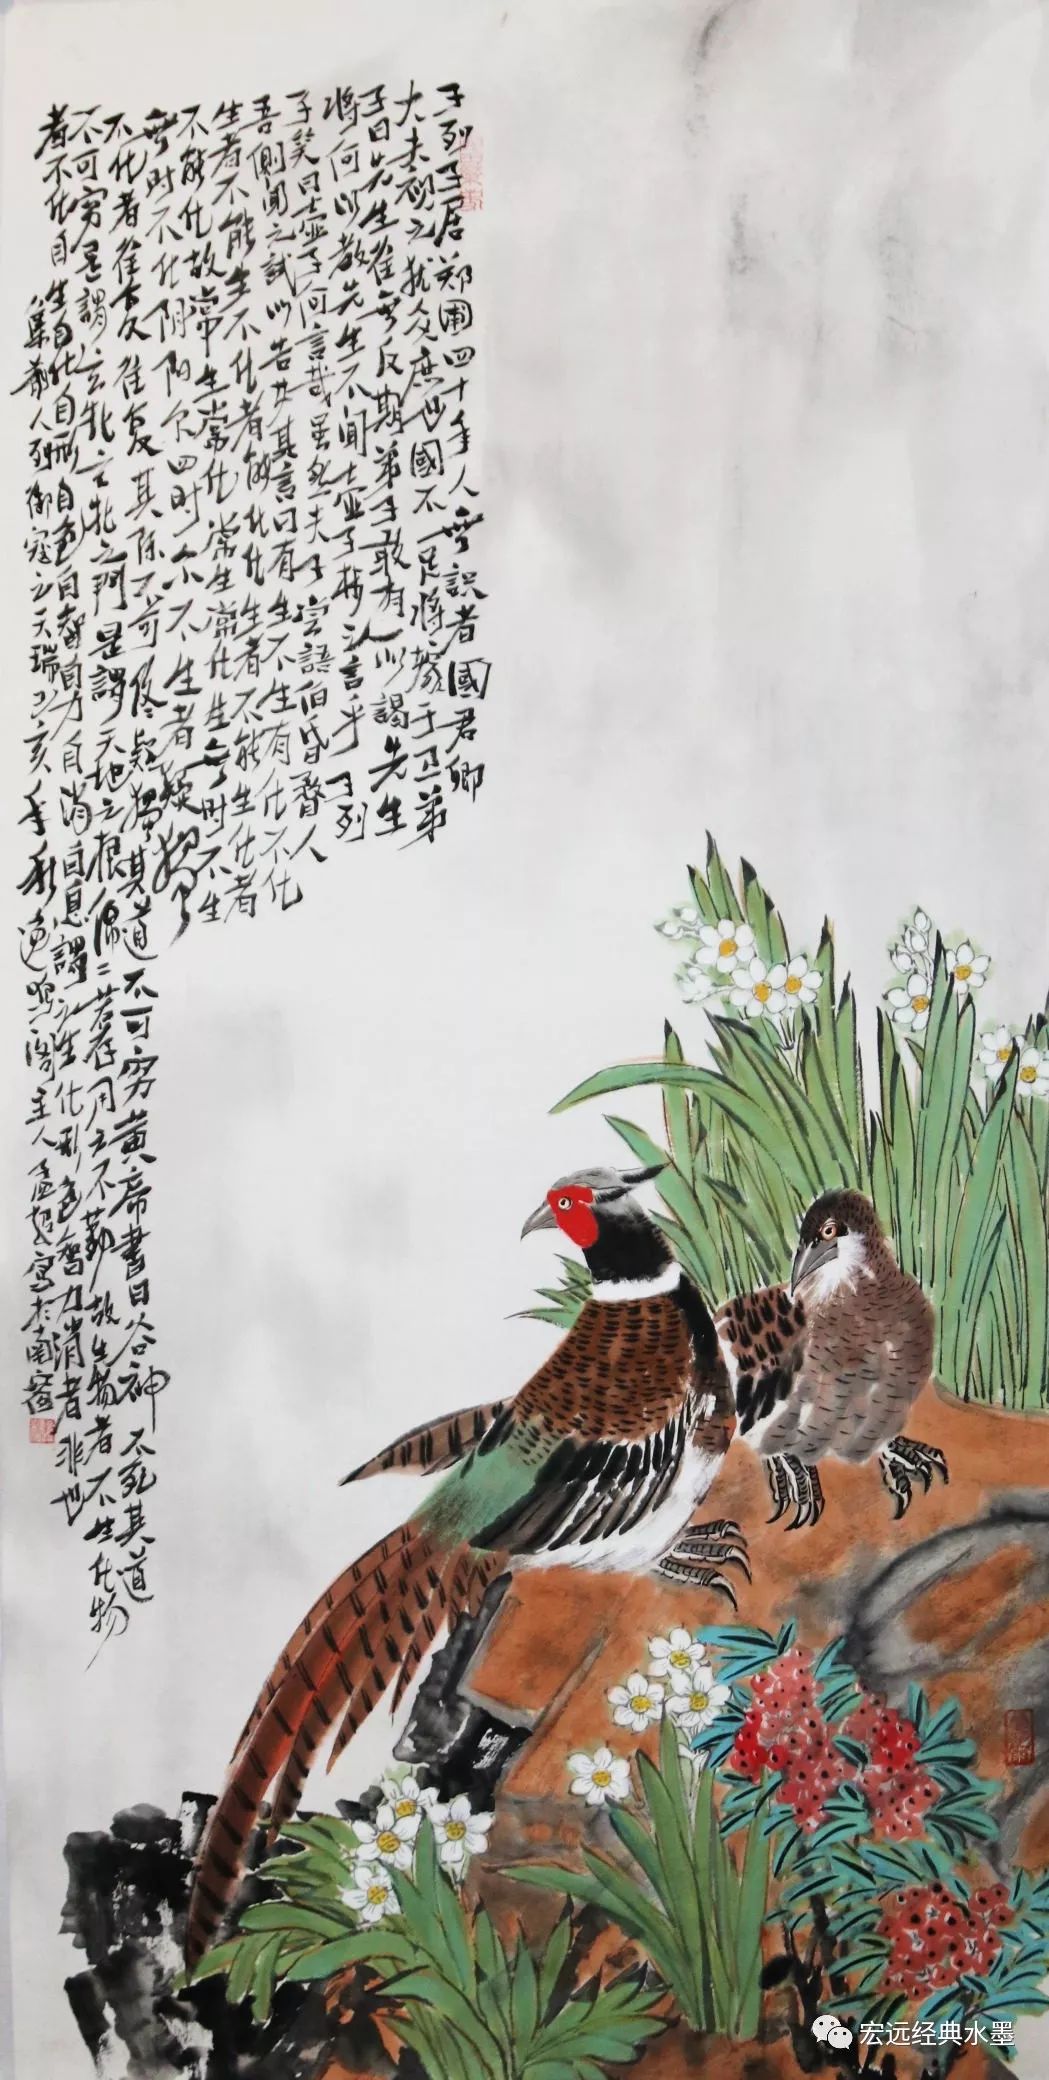 子列子居郑圃四十年人無識者國君卿
大夫视之犹众庶也國不足将嫁于卫弟
子曰先生往無反期弟子敢有以謁先生
将何以教先生不闻壶子林之言乎子列
子笑曰壶子何言哉虽然夫子尝語伯昏瞀人
吾側闻之試以告女其言曰有生不生有化不化
生者不能生不化者能化化生者不能生化者
不能化故常生常化常生常化生無时不生
無时不化阴阳尔四时尔不生者疑獨
不化者往复往复其际不可终疑獨其道不可穷黄帝書曰谷神不死其道
不可穷是謂玄牝玄牝之門是謂天地之根绵々若存用之不勤故生物者不生化物
者不化自生自化自形自色自智自力自消自息謂之生化形色智力消者非也
集前人列御寇之天瑞己亥年秋 主人孟超寫於南窗
宏远经典水墨